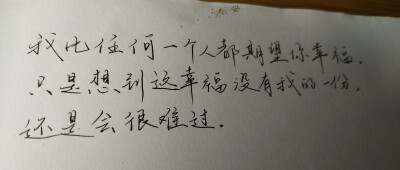 我比任何一个人都期望你幸福.
只是想到这幸福没有我的一份,
还是会很难过.